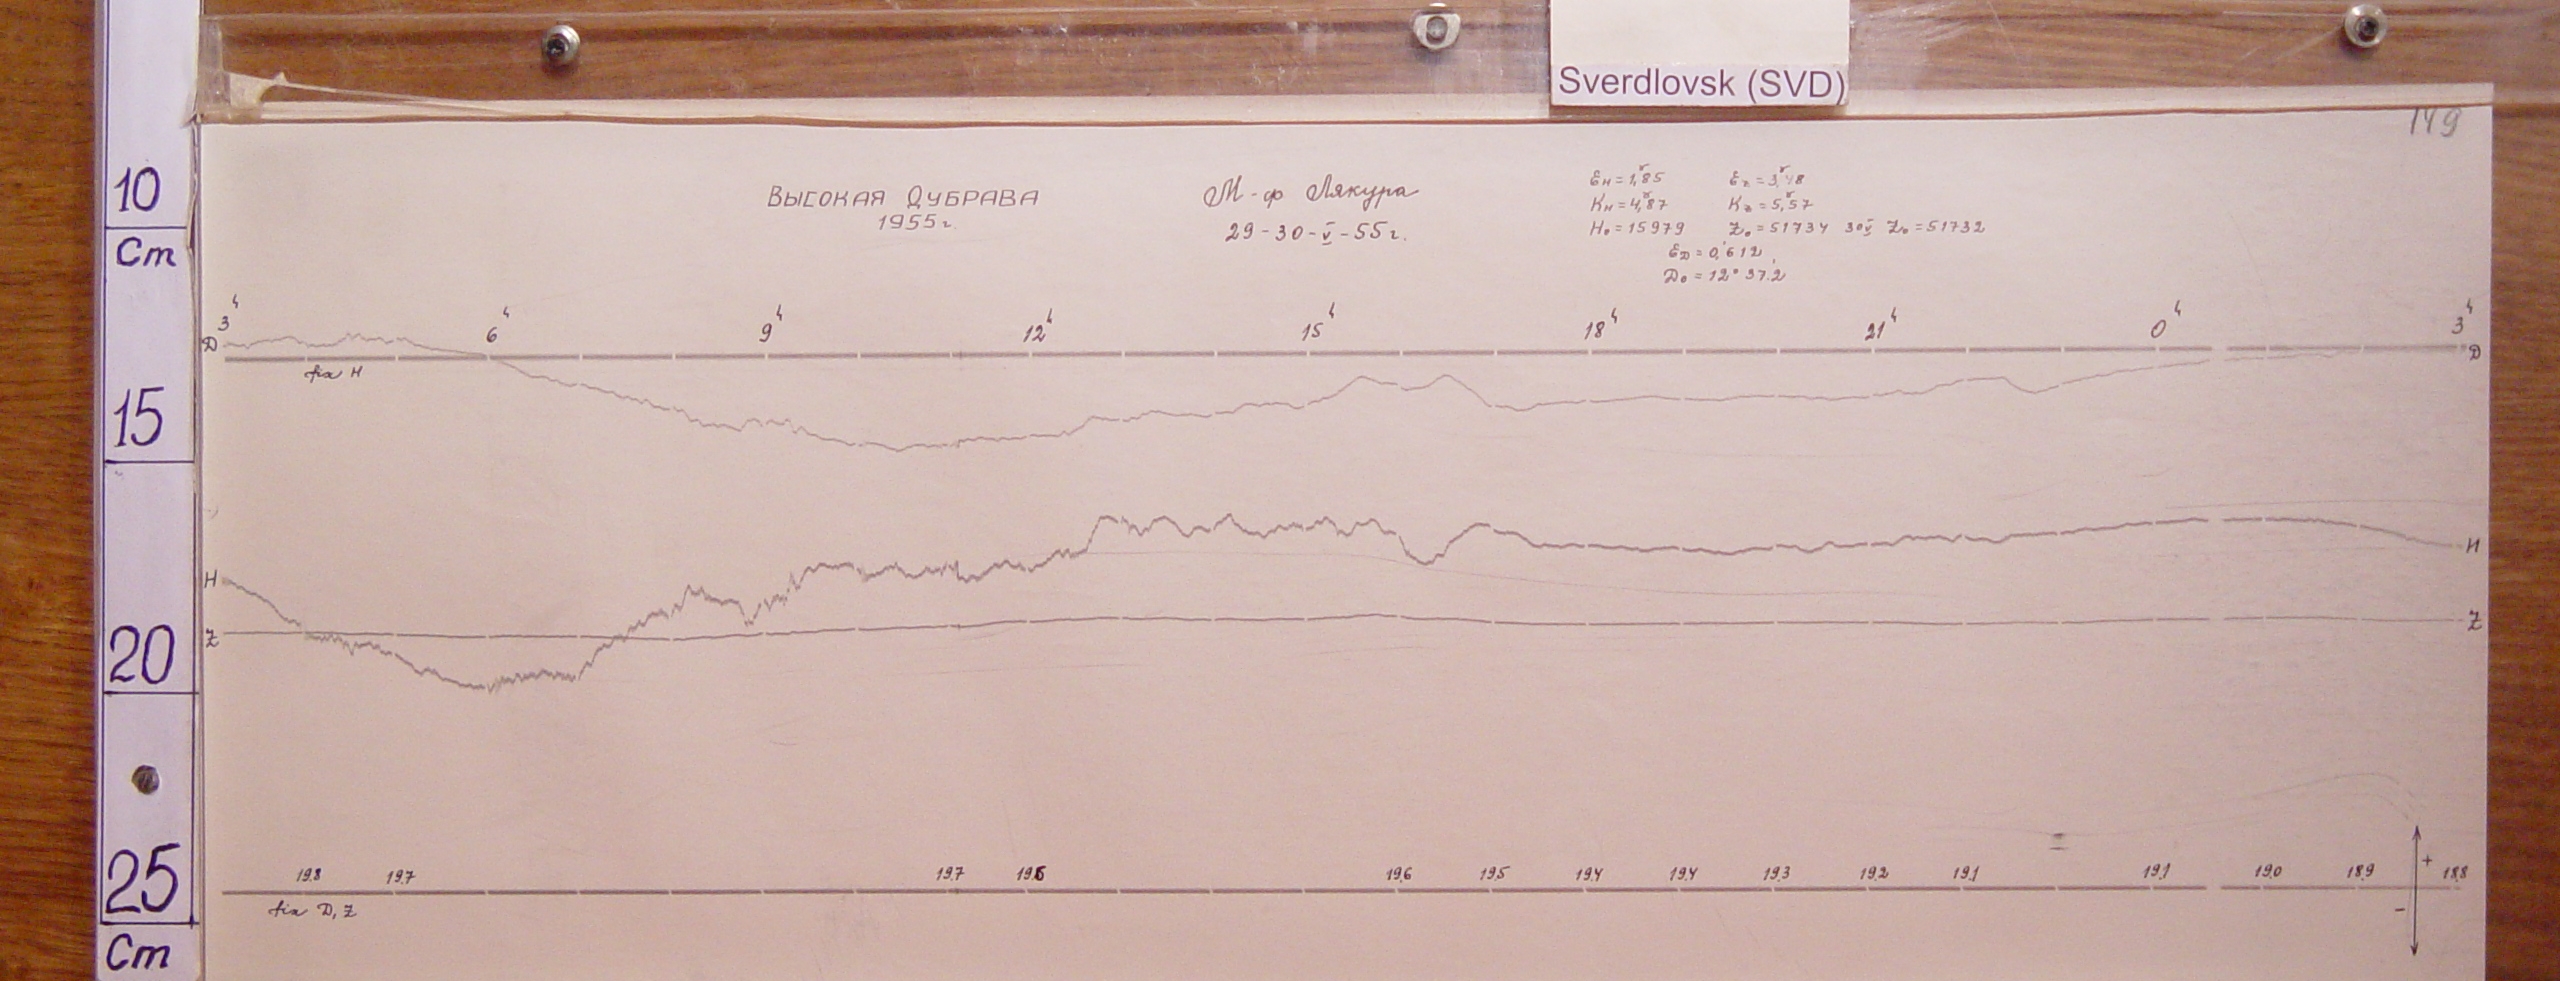 Sverdlovsk (SVD)
149
10
Cm
15
20
25
Cm
ВЫСОКАЯ ДУБРАВА
1955г.
М-ф Лякура
29-30-V-55г.
Ԑн=1,ᵞ85 Ԑz=3,ᵞ48
Kн=4,ᵞ87 Kz=5,ᵞ57
H₀=15979 Z₀=51734 30V Z₀=51732
ԐD=0,'612
D₀=12°37.'2
3ч 6ч 9ч 12ч 15ч 18ч 21ч 0ч 3ч
D D
fix H
H H
Z Z
19.8 19.7 19.7 19.6 19.6 19.5 19.4 19.4 19.3 19.2 19.1 19.1 19.0 18.9 18.8
+
-
fix D, Z